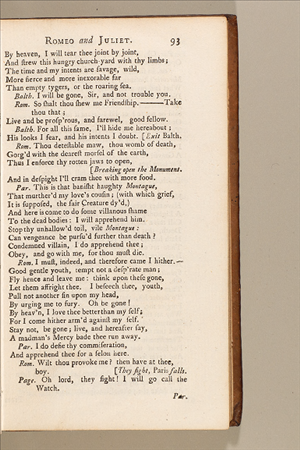 ROMEO and JULIET. 93
By heaven, I will tear thee joint by joint,
And ſtrew this hungry church-yard with thy limbs;
The time and my intents are ſavage, wild,
More fierce and more inexorable far
Than empty tygers, or the roaring ſea.
Balth. I will be gone, Sir, and not trouble you.
Rom. So ſhalt thou ſhew me Friendſhip.———Take
thou that;
Live and be proſp'rous, and farewel, good fellow.
Balth. For all this ſame, I'll hide me hereabout;
His looks I fear, and his intents I doubt. [Exit Balth.
Rom. Thou deteſtable maw, thou womb of death,
Gorg'd with the deareſt morſel of the earth,
Thus I enforce thy rotten jaws to open,
[Breaking open the Monument.
And in deſpight I'll cram thee with more food.
Par. This is that baniſht haughty Montague,
That murther'd my love's couſin; (with which grief,
It is ſuppoſed, the fair Creature dy'd,)
And here is come to do ſome villanous ſhame
To the dead bodies: I will apprehend him.
Stop thy unhallow'd toil, vile Montague:
Can vengeance be purſu'd further than death?
Condemned villain, I do apprehend thee;
Obey, and go with me, for thou muſt die.
Rom. I muſt, indeed, and therefore came I hither.—
Good gentle youth, tempt not a deſp'rate man;
Fly hence and leave me: think upon theſe gone,
Let them affright thee. I beſeech thee, youth,
Pull not another ſin upon my head,
By urging me to fury. Oh be gone!
By heav'n, I love thee better than my ſelf;
For I come hither arm'd againſt my ſelf.
Stay not, be gone; live, and hereafter ſay,
A madman's Mercy bade thee run away.
Par. I do defie thy commiſeration,
And apprehend thee for a felon here.
Rom. Wilt thou provoke me? then have at thee,
boy. [They fight, Paris falls.
Page. Oh lord, they fight! I will go call the
Watch.
Par.